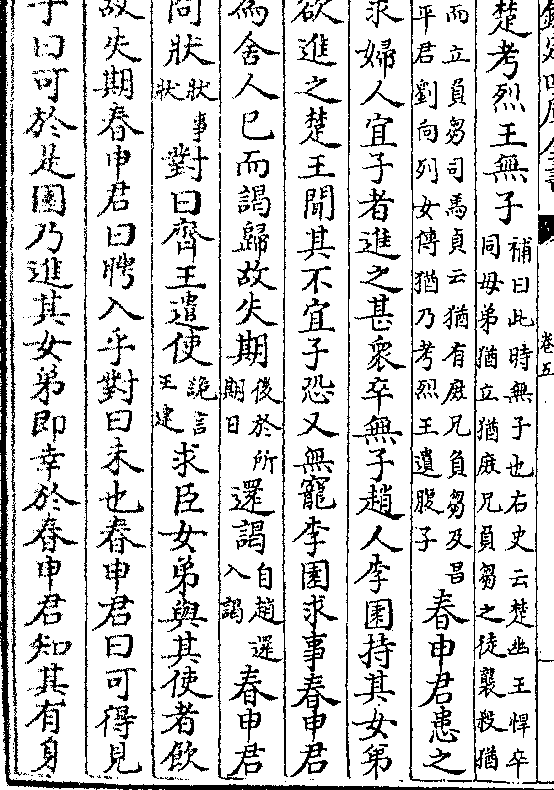 欽定四庫全書
卷五
楚考烈王無子補曰此時無子也右史云楚幽王悍卒
同母弟猶立猶庶兄負芻之徒襲殺猶
而立負芻司馬貞云猶有庶兄負芻及昌
平君劉向列女傳猶乃考烈王遺腹子春申君患之
求婦人宜子者進之甚衆卒無子趙人李園持其女弟
欲進之楚王聞其不宜子恐又無寵李園求事春申君
為舍人已而謁歸故失期後於所
期日還謁自趙還
入謁春申君
問狀狀事
狀對曰齊王遣使詭言
王建求臣女弟與其使者飲
故失期春申君曰聘入乎對曰未也春申君曰可得見
乎曰可於是園乃進其女弟即幸於春申君知其有身